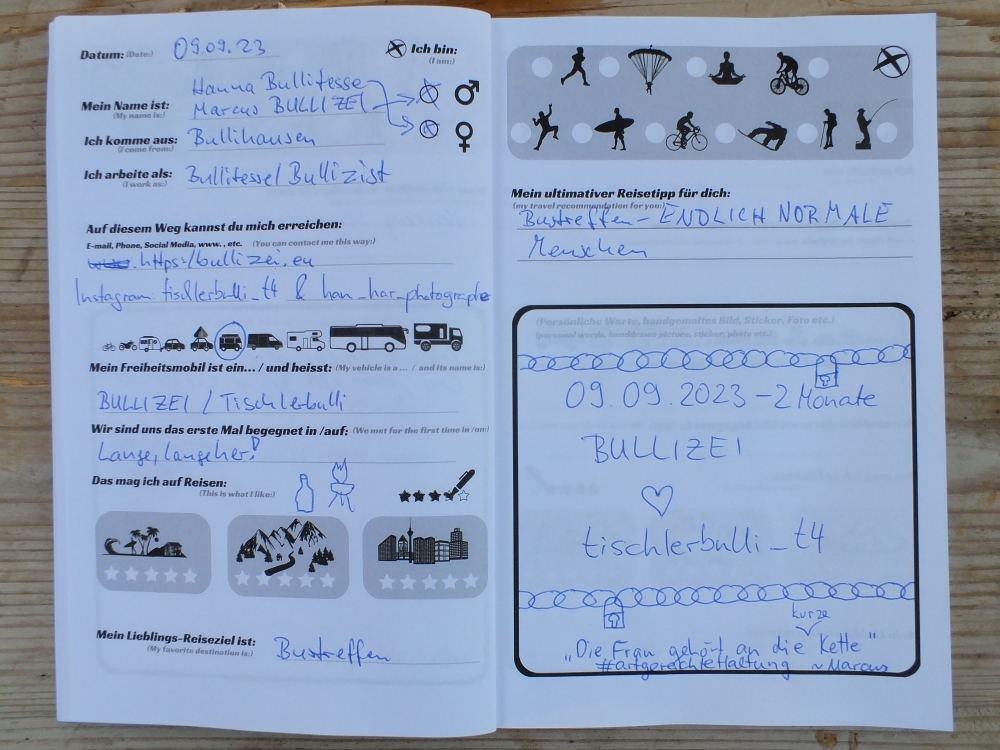 Datum: (Date:) 09.09.23
Ich bin:
(I am:)
Hanna Bullitesse
Mein Name ist: Marcus BULLIZEI
(My name is:)
Ich komme aus: Bullihausen
(I come from:)
Ich arbeite als: Bullitesse / Bullizist
(I work as:)
Auf diesem Weg kannst du mich erreichen:
E-mail, Phone, Social Media, www. , etc. (You can contact me this way:)
https://bullizei.eu
Instagram tischlerbulli_t4 & han_har_photographe
Mein Freiheitsmobil ist ein... / und heisst: (My vehicle is a ... / and its name is:)
BULLIZEI / Tischlerbulli
Wir sind uns das erste Mal begegnet in /auf: (We met for the first time in /on:)
Lange, lange her!
Das mag ich auf Reisen:
(This is what I like:)
Mein Lieblings-Reiseziel ist:
(My favorite destination is:)
Bustreffen
Mein ultimativer Reisetipp für dich:
(my travel recommendation for you:)
Bustreffen - ENDLICH NORMALE
Menschen
(Persönliche Worte, handgemaltes Bild, Sticker, Foto etc.)
(personal words, handdrawn picture, sticker, photo etc.)
09.09.2023 - 2 Monate
BULLIZEI
tischlerbulli_t4
kurze
„Die Frau gehört an die Kette"
#artgerechteHaltung ~Marcus